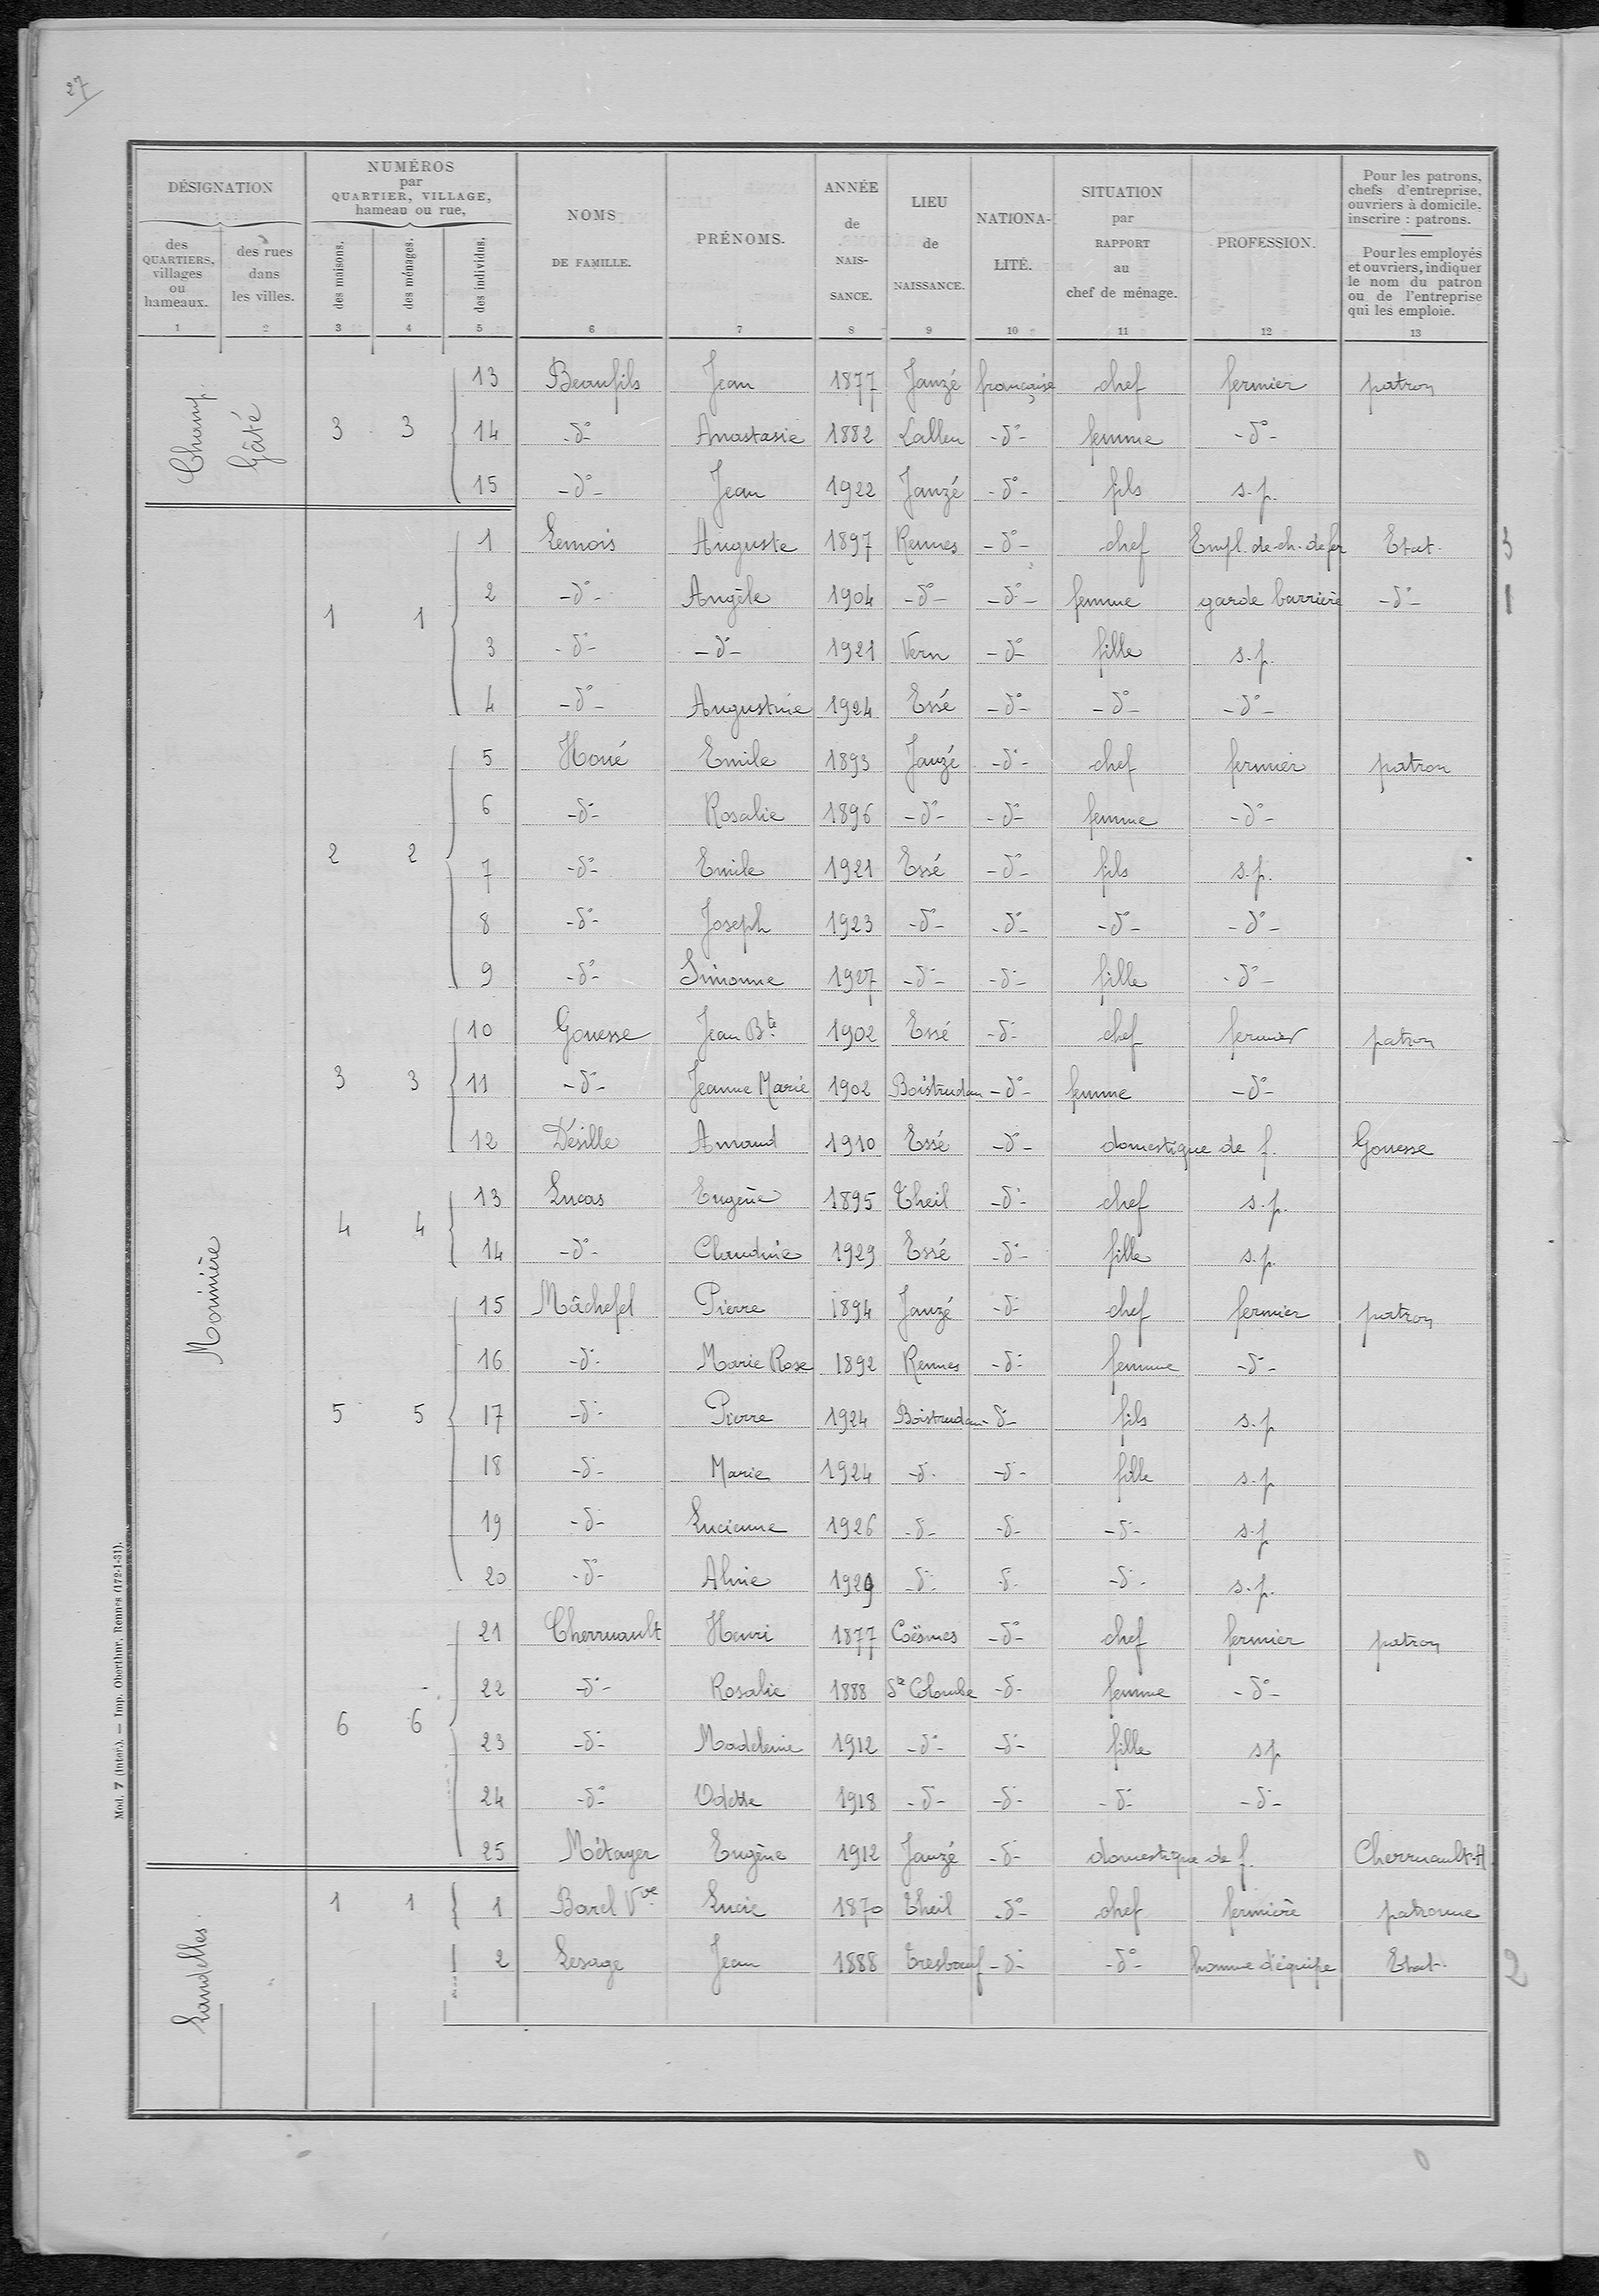 27
DÉSIGNATION
NUMÉROS
par
QUARTIER, VILLAGE,
hameau ou rue,
des
QUARTIERS,
villages
ou
hameaux.
des rues
dans
les villes.
des maisons.
des ménages.
des individus.
NOMS
DE FAMILLE.
PRÉNOMS.
ANNÉE
de
NAIS-
SANCE.
LIEU
de
NAISSANCE.
NATIONA-
LITÉ.
SITUATION
par
RAPPORT
au
chef de ménage.
PROFESSION.
Pour les patrons,
chefs d'entreprise,
ouvriers à domicile,
inscrire : patrons.
Pour les employés
et ouvriers, indiquer
le nom du patron
ou de l'entreprise
qui les emploie.
1 2 3 4 5 6 7 8 9 10 11 12 13
Champ
Gâté
13 Beaufils Jean 1877 Janzé française chef fermier patron
3 3 14 -d°- Anastasie 1882 Lalleu -d°- femme -d°-
15 -d°- Jean 1922 Janzé -d°- fils s.p.
Morinière
1 Lemois Auguste 1897 Rennes -d°- chef Empl. de ch. de fer Etat 3
1 1 2 -d°- Angèle 1904 -d°- -d°- femme garde barrière -d°- 1
3 -d°- -d°- 1921 Vern -d°- fille s.p.
4 -d°- Augustine 1924 Essé -d°- -d°- -d°-
5 Houé Emile 1893 Janzé -d°- chef fermier patron
6 -d°- Rosalie 1896 -d°- -d°- femme -d°-
2 2 7 -d°- Emile 1921 Essé -d°- fils s.p.
8 -d°- Joseph 1923 -d°- -d°- -d°- -d°-
9 -d°- Simonne 1927 -d°- -d°- fille -d°-
10 Gouesse Jean Bte 1902 Essé -d°- chef fermier patron
3 3 11 -d°- Jeanne Marie 1902 Boistrudan -d°- femme -d°-
12 Désille Amand 1910 Essé -d°- domestique de f. Gouesse
4 4 13 Lucas Eugène 1895 Theil -d°- chef s.p.
14 -d°- Claudine 1929 Essé -d°- fille s.p.
15 Mâchefel Pierre 1894 Janzé -d°- chef fermier patron
16 -d°- Marie Rose 1892 Rennes -d°- femme -d°-
5 5 17 -d°- Pierre 1924 Boistrudan -d°- fils s.p
18 -d°- Marie 1924 -d°- -d°- fille s.p
19 -d°- Lucienne 1926 -d°- -d°- -d°- s.p
20 -d°- Aline 1929 -d°- -d°- -d°- s.p.
21 Cherruault Henri 1877 Coësmes -d°- chef fermier patron
22 -d°- Rosalie 1888 Ste Colombe -d°- femme -d°-
6 6 23 -d°- Madeleine 1912 -d°- -d°- fille sp
24 -d°- Odette 1918 -d°- -d°- -d°- -d°-
25 Métayer Eugène 1912 Janzé -d°- domestique de f. Cherruault H
Landelles
1 1 1 Barel Vve Lucie 1870 Theil -d°- chef fermière patronne
2 Lesage Jean 1888 Tresboeuf -d°- -d°- homme d'équipe Etat 2
Mod. 7 (Inter.). — Imp. Oberthur, Rennes (172-1-31).